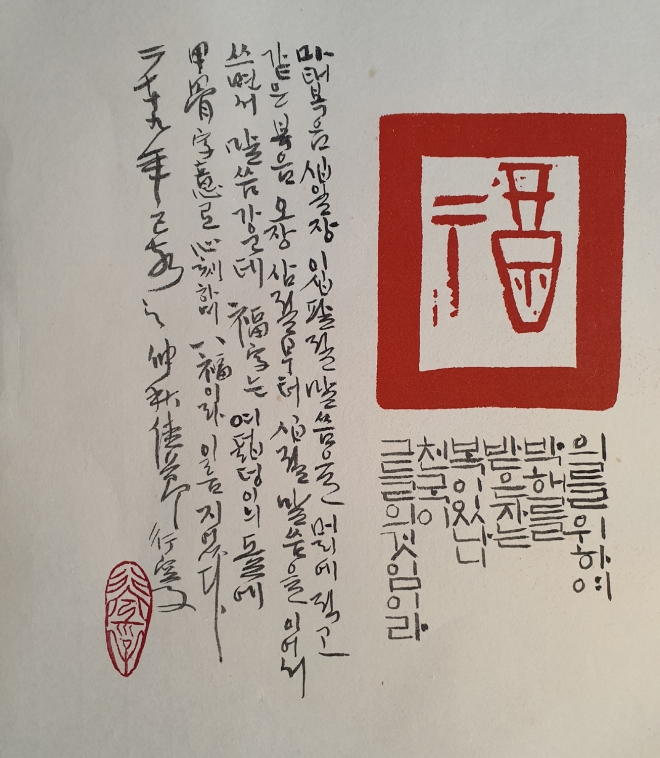 의를위하여
박해를
받은자는
복이있나니
천국이
그들의것임이라
마태복음 십일장 이십팔절 말씀을 머리에 적고
같은 복음 오장 삼절부터 십절 말씀을 이어서
쓰면서 말씀 가운데 福字는 여덟덩이의 돌에
甲骨字意로 心刻하며 八福이라 이름 지었다
二千十九年 己亥之仲秋佳節